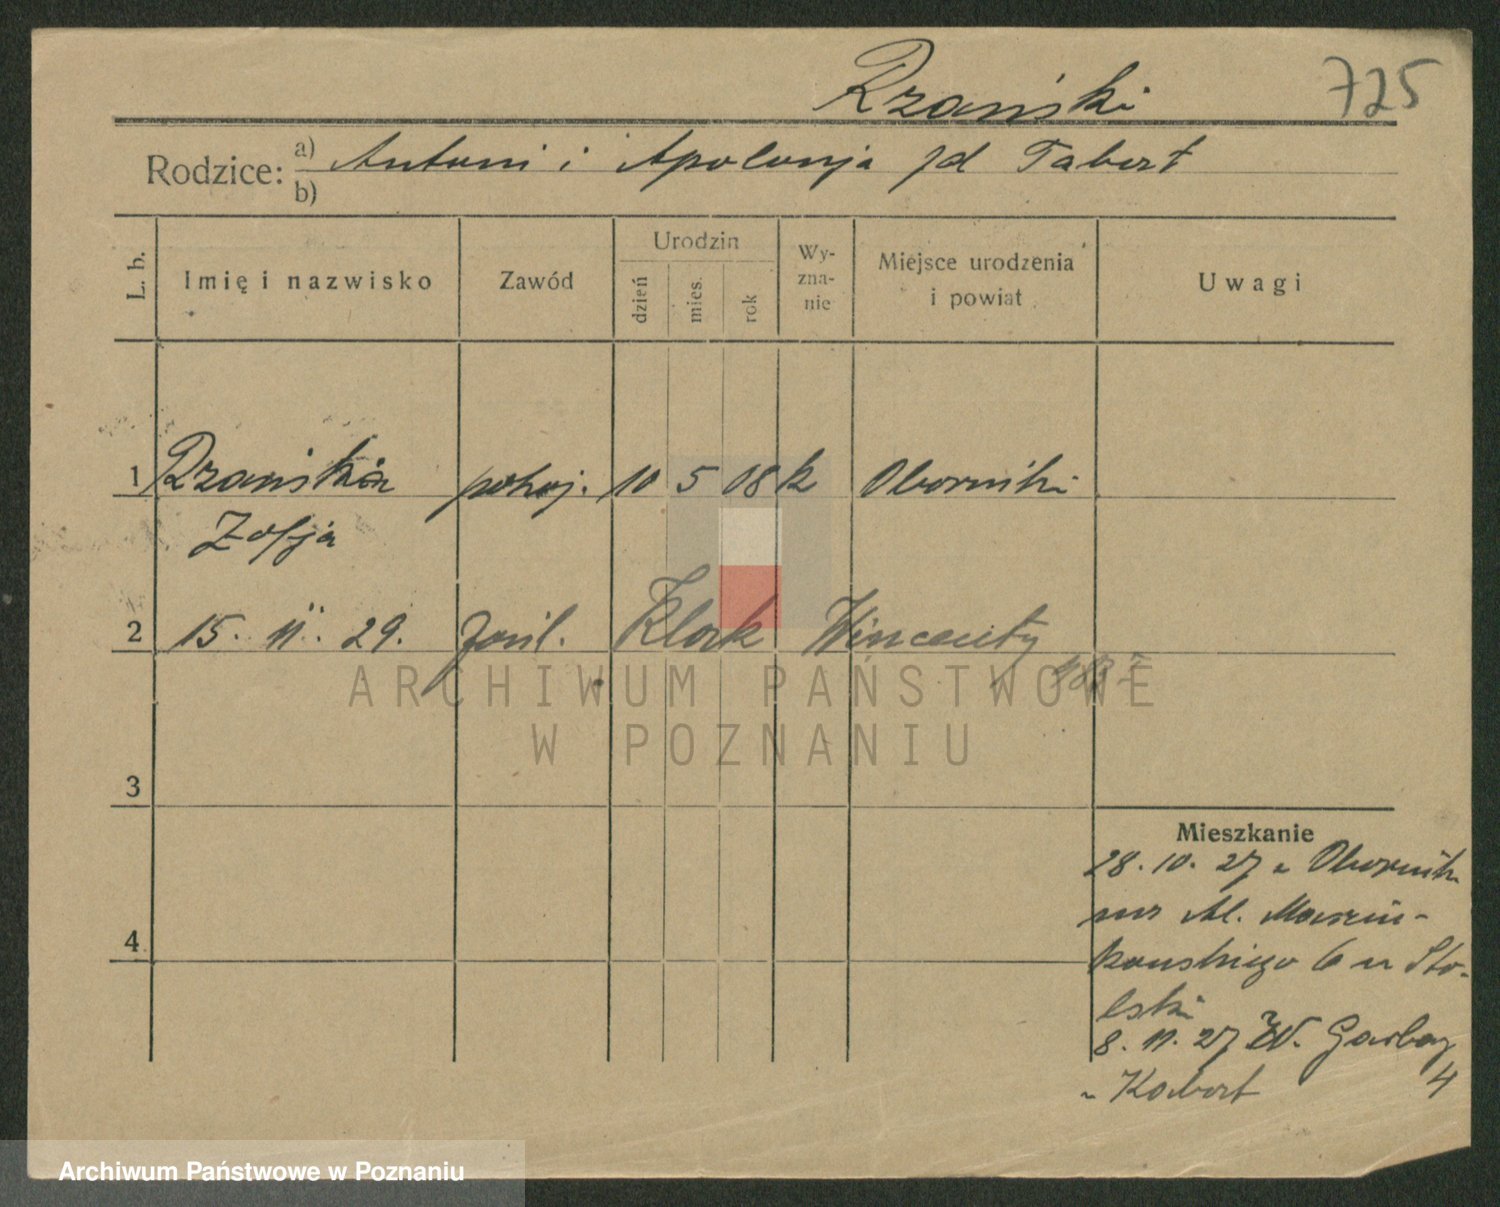 Rzański 725
Rodzice: a) Antoni i Apolonja zd Tabert
b)
L. b. Imię i nazwisko Zawód Urodzin dzień mies. rok Wy-zna-nie Miejsce urodzenia i powiat Uwagi
1 Rzańska pokoj. 10 5 08 k Oborniki
Zofja
2 15. 11. 29. Klark Wincenty
ARCHIWUM PAŃSTWOWE
W POZNANIU
3
Mieszkanie
28. 10. 27 z Obornik
4
6 u Sto-
lski
8. 11. 27 W. Garbary
4
Archiwum Państwowe w Poznaniu